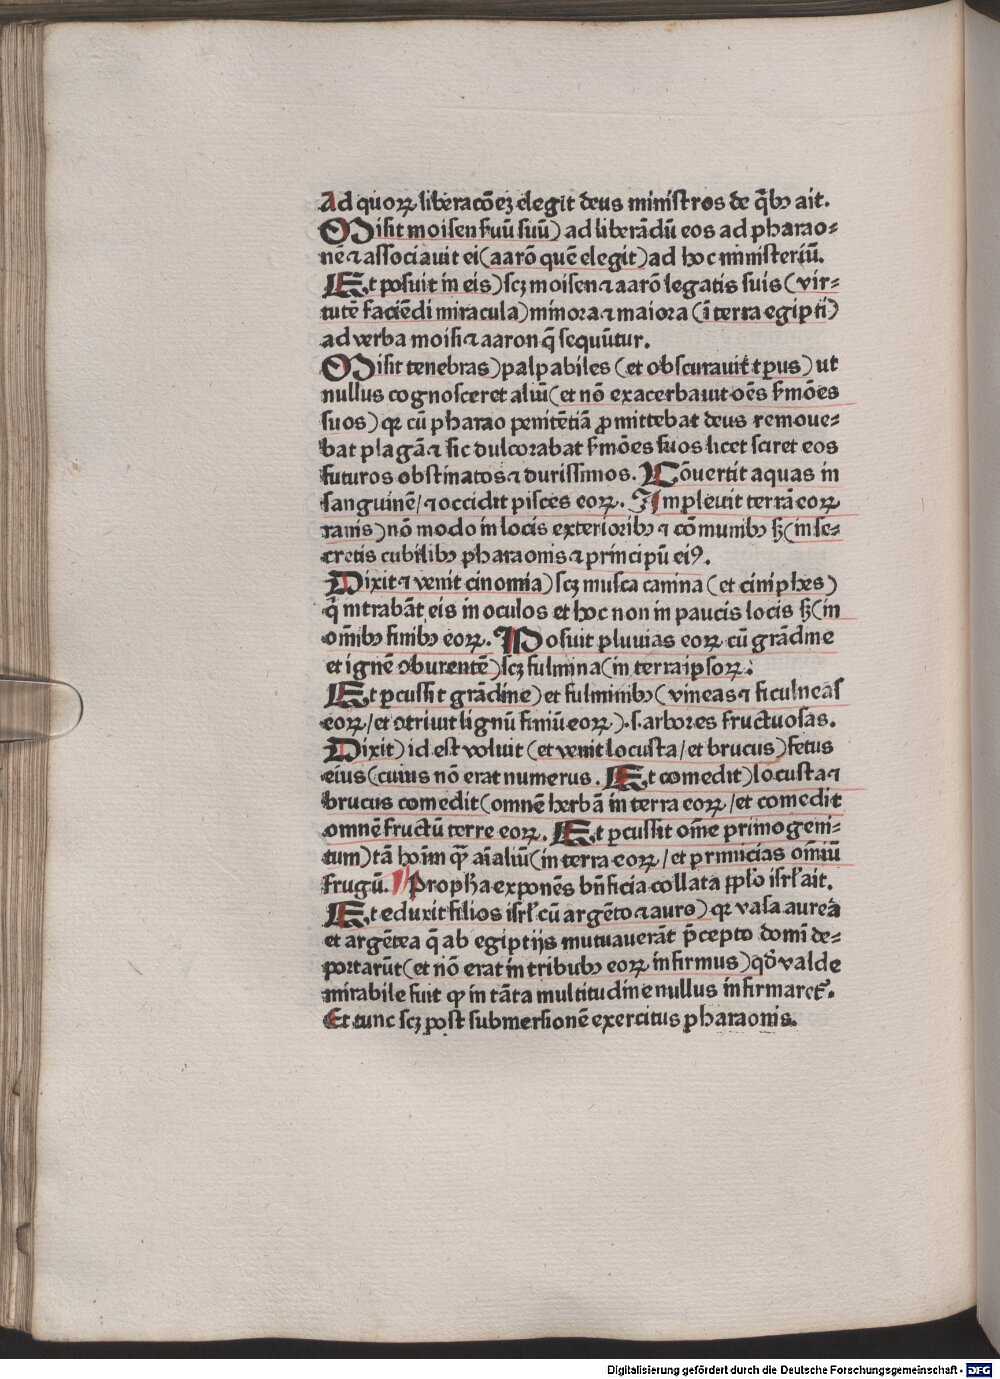 Ad quoꝝ liberacōeꝫ elegit deus ministros de q̄bꝫ ait.
Misit moisen ẜuū suū) ad liberādū eos ad pharao⸗
nē ⁊ associauit ei (aarō quē elegit) ad hoc ministeriū.
Et posuit in eis) scꝫ moisen ⁊ aarō legatis suis (vir⸗
tutē faciēdi miracula) minora ⁊ maiora (ī terra egipti)
ad verba moisi ⁊ aaron q̄ sequūtur.
Misit tenebras) palpabiles (et obscurauit tꝑus) ut
nullus cognosceret aliū (et nō exacerbauit oēs ẜmōes
suos) qꝛ cū pharao penitētiā ꝓmittebat deus remoue⸗
bat plagā ⁊ sic dulcorabat ẜmōes suos licet sciret eos
futuros obstinatos ⁊ durissimos. Cōuertit aquas in
sanguinē / ⁊ occidit pisces eoꝝ. Impleuit terrā eoꝝ
ranis) nō modo in locis exterioribꝫ ⁊ cōmunibꝫ sꝫ (in se⸗
cretis cubilibꝫ pharaonis ⁊ principū eiꝰ.
Dixit ⁊ venit cinomia) scꝫ musca canina (et ciniphes)
q̄ intrabāt eis in oculos et hoc non in paucis locis sꝫ (in
om̄ibꝫ finibꝫ eoꝝ. Posuit pluuias eoꝝ cū grādine
et ignē ↄburentē) scꝫ fulmina (in terra ipsoꝝ.
Et ꝑcussit grādine) et fulminibꝫ (vineas ⁊ ficulneas
eoꝝ / et ↄtriuit lignū finiū eoꝝ). s. arbores fructuosas.
Dixit) id est voluit (et venit locusta / et brucus) fetus
eius (cuius nō erat numerus. Et comedit) locusta ⁊
brucus comedit (omnē herbā in terra eoꝝ / et comedit
omnē fructū terre eoꝝ. Et ꝑcussit om̄e primogeni⸗
tum) tā hoīm qꝫ aīaliū (in terra eoꝝ / et primicias om̄iū
frugū. Propħa exponēs bn̄ficia collata ppl̓o isrl̓ ait.
Et eduxit filios isrl̓ cū argēto ⁊ auro) qꝛ vasa aurea
et argētea q̄ ab egiptijs mutuauerāt p̄cepto domī de⸗
portarūt (et nō erat in tribubꝫ eoꝝ infirmus) qd̄ valde
mirabile fuit ꝙ in tāta multitudine nullus infirmaret̓.
Et tunc scꝫ post submersionē exercitus pharaonis.
Digitalisierung gefördert durch die Deutsche Forschungsgemeinschaft - DFG